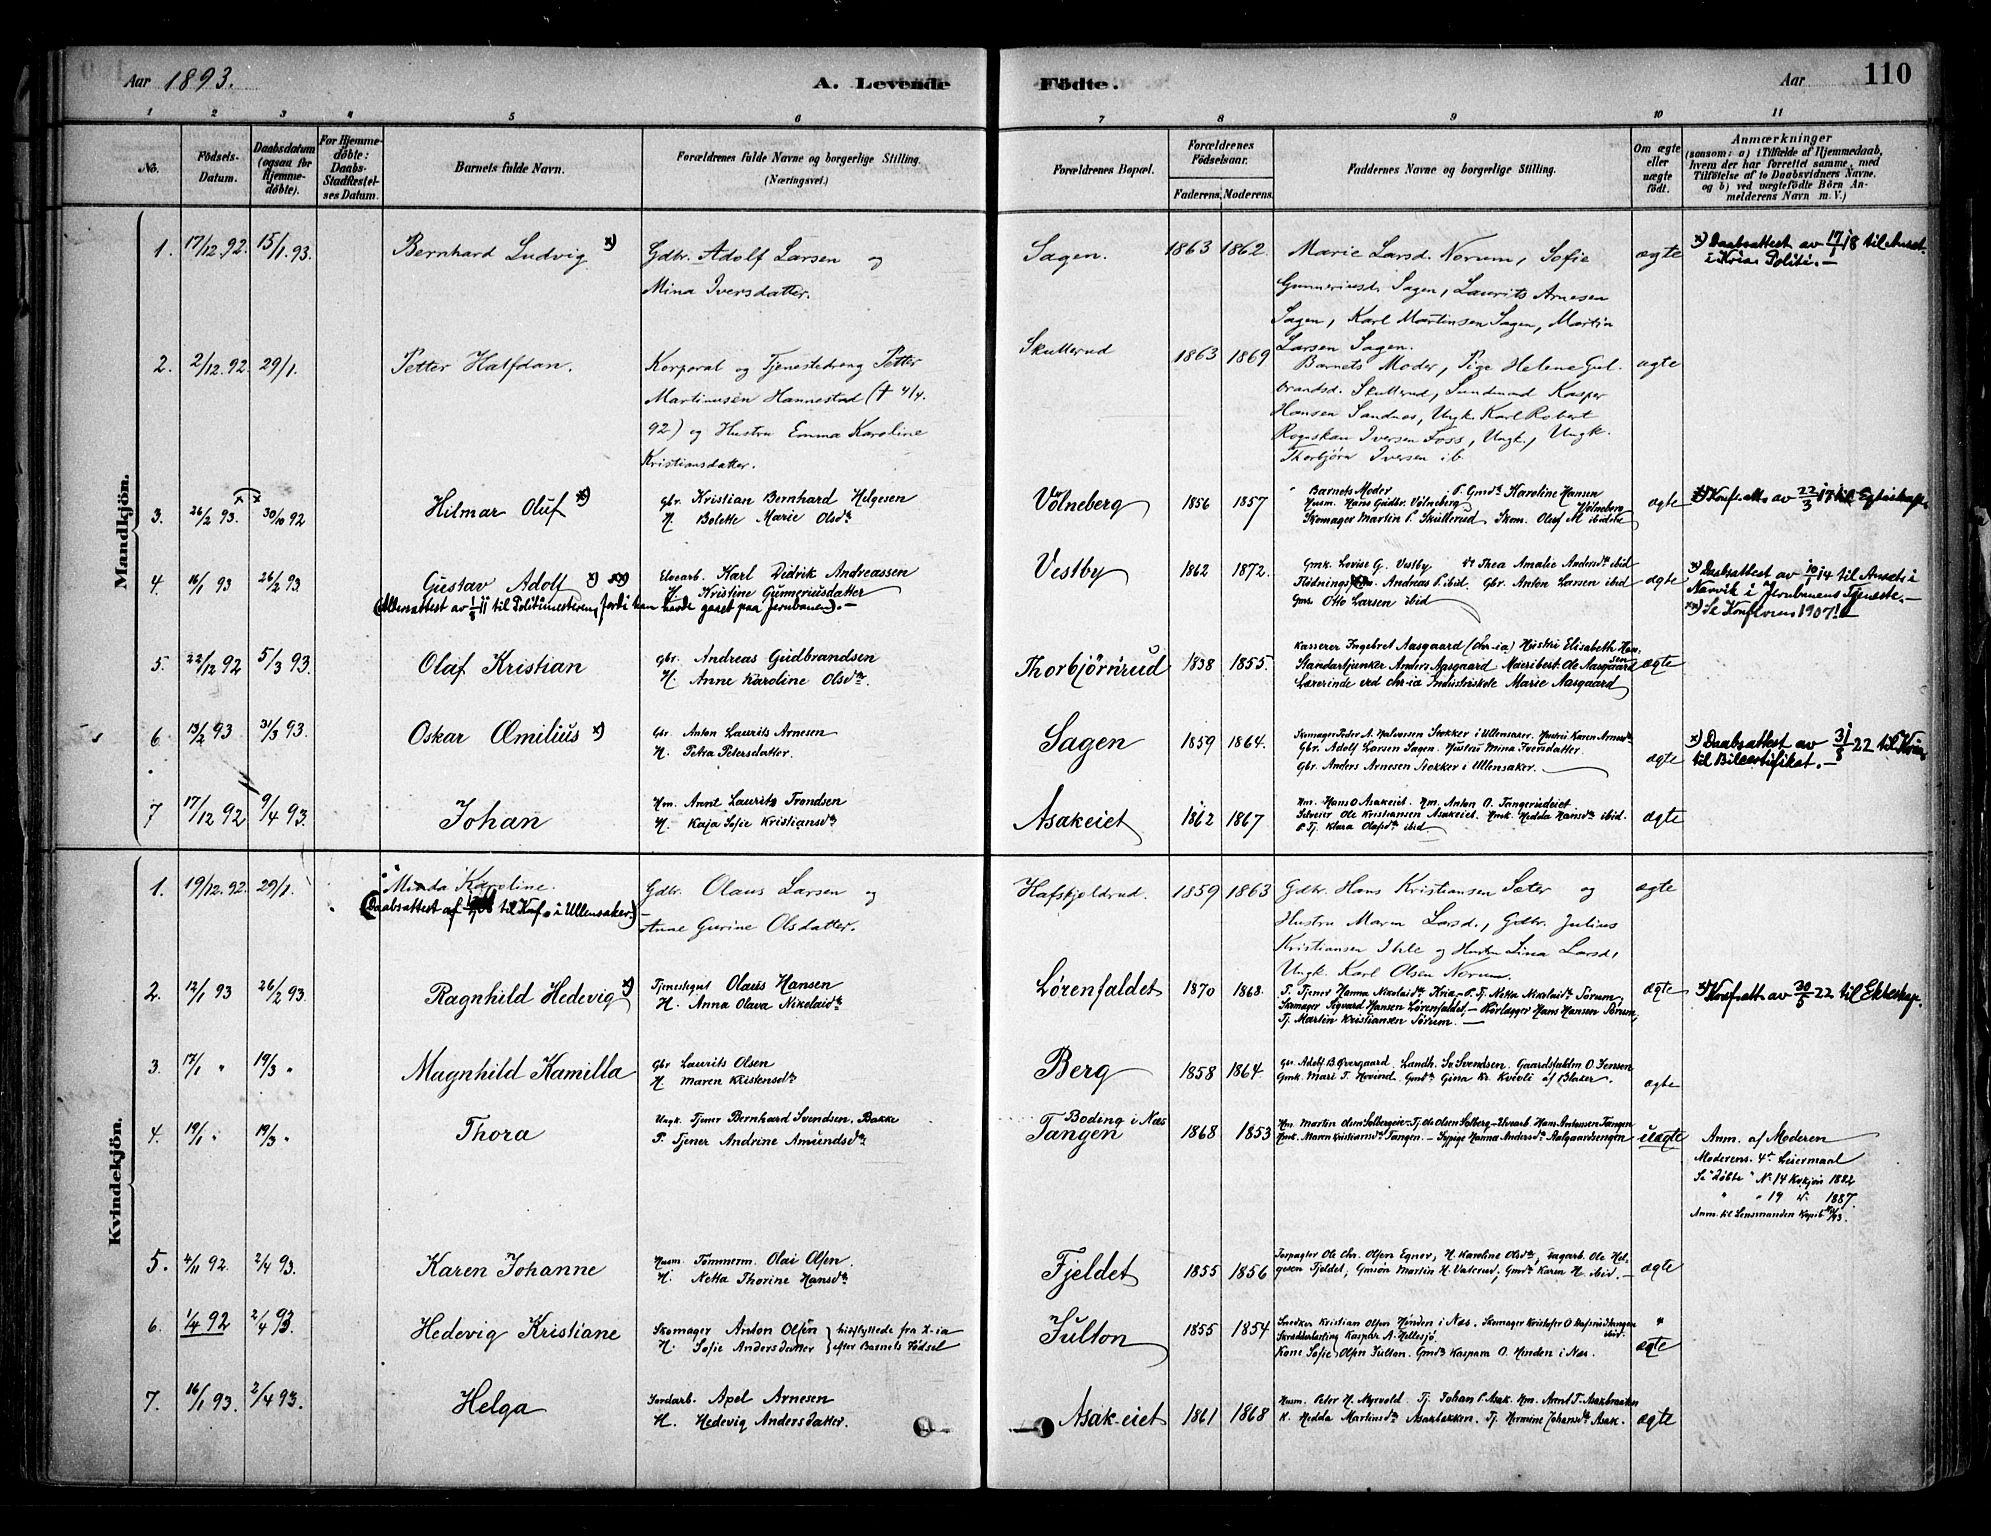 Aar 1893. A. Levende Födte. Aar 110
1 2 3 4 5 6 7 8 9 10 11
No. Födsels-Datum. Daabsdatum (ogsaa for Hjemme-döbte). For Hjemme-döbte: Daabs-Stadfæstel-ses Datum. Barnets fulde Navn. Forældrenes fulde Navne og borgerlige Stilling. (Næringsvei.) Forældrenes Bopæl. Forældrenes Födselsaar. Faderens. Moderens. Faddernes Navne og borgerlige Stilling. Om ægte eller uægte födt. Anmærkninger (saasom: a) i Tilfælde af Hjemmedaab, hvem der har forrettet samme, med Tilföielse af to Daabsvidners Navne. og b) ved uægtefödte Börn An-melderens Navn m. V.)
Mandkjön.
1. 17/12.92. 15/1.93. Bernhard Ludvig x) Gdbr. Adolf Larsen og Sagen. 1863 1862 Marie Larsd. Norum, Sofie ægte x) Daabsattest av 17/1 18 til Anset.
Mina Iversdatter. Gunneriusd. Sagen, Laurits Arnesen i Kria Politi.-
Sagen, Karl Martinsen Sagen, Martin
Larsen Sagen.
2. 2/12.92. 29/1. Petter Halfdan. Korporal og Tjenestedreng Petter Skullerud 1863 1869 Barnets Moder, Pige Helene Gul- ægte
Martinusen Hannestad († 4/4. brandsd. Skullerud, Sundmand Kasper
92) og Hustru Emma Karoline Hansen Sandnes, Ungk. Karl Robert
Kristiansdatter. Iversen Foss, Ungk., Ungk.
Thorbjörn Iversen ib.
3. 26/2 93. x 30/10 92 Hilmar Oluf x) Gbr. Kristian Bernhard Helgesen Völneberg 1856 1857 Barnets Moder P. Gmdtr Karoline Hansen ægte x) Konf.att. av 22/3 17 til Egteskap.
H. Bolette Marie Olsdtr Husm. Hans Gudbr. Völneberg Völneberg
Skomager Martin P. Skullerud, Skom. Oluf M ibidste
4. 16/1 93 26/2 93. Gustav Adolf x) xx) Elvearb. Karl Didrik Andreassen Vestby 1862 1872. Gmk. Lovise G. Vestby Thea Amalie Andersdtr ibid ægte x) Daabsattest av 10/1 14 til Ansets i
H. Kristine Gunneriusdatter Flödnings Andreas P. ibid Gbr. Anton Larsen ibid Narvik i Jernbanens Tjeneste.-
til Politimestering fordi han havde gaaet paa Jernbanen).- Gmr. Otto Larsen ibid xx) Se Konf. 1907!
5. 22/12 92 5/3 93. Olaf Kristian Gbr. Andreas Gudbrandsen Thorbjörnrud 1838 1855. Kasserer Ingebret Aasgaard (Chr-ia) Hustri Elisabeth Han- ægte
H. Anne Karoline Olsdtr. Standartjunker Anders Aasgaard Meieribest. Ole Aasgaard
Lærerinde ved Chr-ia Industriskole Marie Aasgaard
6. 13/2 93 31/3 93. Oskar Æmilius x) Gbr. Anton Laurits Arnesen Sagen 1859 1864. Skomager Peder A. Halvorsen Stokker i Ullensaker. Hustri Karen Arnesdtr ægte x) Daabsattest av 31/8 22 til Kria
H. Petra Petersdatter. Gbr. Adolf Larsen Sagen. Hustri Mina Iversdatter. til Bilcertifikat.-
Gbr. Anders Arnesen Stokker i Ullensaker.
7 17/12 92 9/4 93. Johan Hm. Arnt Lauritz Trondsen Asakeiet 1862 1867 Hm. Hans O Asakeiet. Hm. Anton O. Tangerudeiet ægte
H. Kaja Sofie Kristiansdtr Ole Kristiansen Asakeiet. Hmk. Hedda Hansdtr ibid.
P. Tj. Klara Olafsdtr ibid
Kvindekjön.
1. 19/12.92. 29/1. Minda Karoline. Gdbr. Olaus Larsen og Hafskjoldrud 1859 1863 Gdbr. Hans Kristiansen Sæter og ægte
(Daabsattest af til Konf. i Ullensaker) Anne Gurine Olsdatter. Hustru Maren Larsd., Gdbr. Julius
Kristiansen Ihle og Hustru Lina Larsd.,
Ungk. Karl Olsen Norum.
2. 12/1 93 26/2 93. Ragnhild Hedevig x) Tjenestegut Olaus Hansen Lørenfaldet 1870 1868. P. Tjener Hanna Nikolaidtr Kria - P. Tj. Netta Nikolaidtr Sørum, ægte x) Konf.att. av 20/5 22 til Ekteskap.
H. Anna Olava Nikolaidtr Skomager Sigvard Hansen Lørenfaldet. - Hans Hansen Sørum,
Tj. Martin Kristiansen Sørum.-
3. 17/1 " 19/3 " Magnhild Kamilla Gbr Laurits Olsen Berg 1858 1864 Gbr. Adolf B Øvergaard. Landh. Sv. Svendsen. Gaardsfuldm O. Jensen ægte
H Maren Kristensdtr Gmk. Mari T. Hovind. Gmdtr Gina Kr. Kvevli af Blaker.
4. 19/1 " 19/3 " Thora Ungk. Tjener Bernhard Svendsen, Bakke Boding i Næs 1868 1853 Hm Martin Olsen Solbergeie - Tj. Ole Olsen Solberg - Elvearb. Hans Antonsen Tangen uægte Anm. af Moderen
P. Tjener Andrine Amundsdtr Tangen Hmk. Maren Kristiansdtr Tangen. - Sypige Hanna Andersdtr Aalgaardsengen Moderens. 4de Leiermaal
Se "Döbte" No 14 Kvkjøn 1882
" " 19 1887.
Anm. til Lensmanden
5. 4/11 92. 2/4 93. Karen Johanne Husm. Tömmerm. Olai Olsen. Fjeldet 1855 1856 Forpagter Ole Chr. Olsen Egner, H. Karoline Olsdtr, Sagarb. Ole Hel- ægte
H. Netta Thorine Hansdtr gesen Fjeldet, Gmsøn Martin H. Vaterud, Gmdtr Karen H. ibid.-
6. 1/4 92 2/4 93. Hedevig Kristiane Skomager Anton Olsen hidflyttede fra X-ia Fulton 1855 1854 Snedker Kristian Olsen Hinden i Næs. Skomager Kristofer O ægte
H. Sofie Andersdatter efter Barnets Födsel Skrædderlærling Kaspar A. Hellesjö
Kone Sofie Olsen Fulton. Gmdtr Kaspara O. Hinden i Næs.
7. 16/1 93. 2/4 93. Helga Jordarb. Apel Arnesen Asakeiet 1861 1868 Husm. Peder H. Myrvold. Tj. Johan P. Asak Hm. Arnt T. Asakbraaten ægte
H. Hedevig Andersdatter. K. Hedda Martinsdtr Asakbakken. Tj. Hermine Johansdtr Asak.